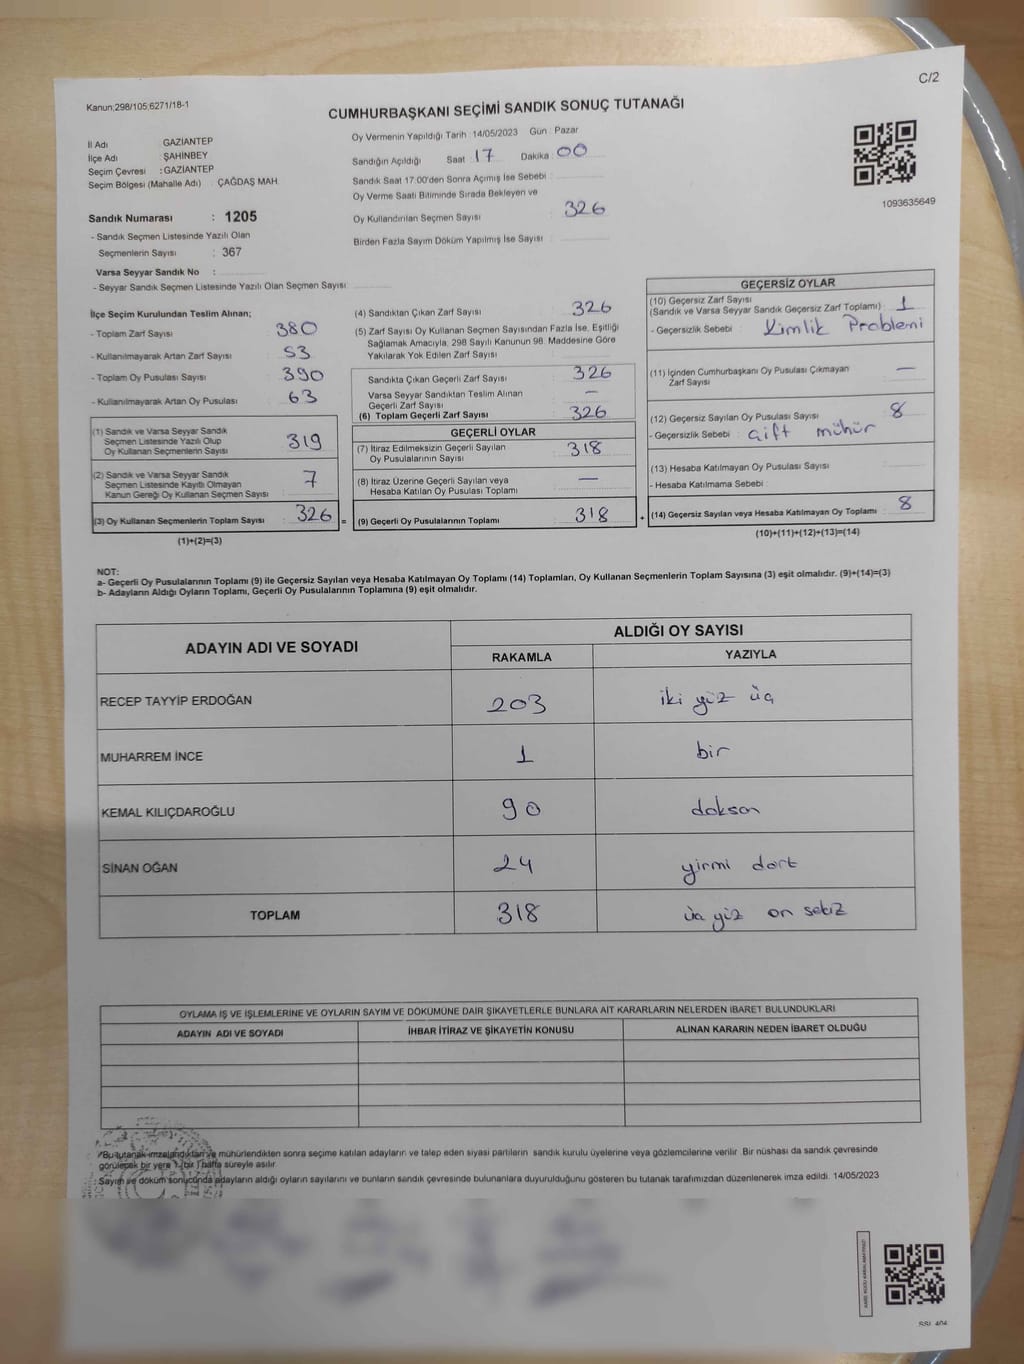 C/2
Kanun;298/105;6271/18-1
CUMHURBAŞKANI SEÇİMİ SANDIK SONUÇ TUTANAĞI
İl Adı GAZİANTEP
İlçe Adı : ŞAHİNBEY
Seçim Çevresi : GAZİANTEP
Seçim Bölgesi (Mahalle Adı) : ÇAĞDAŞ MAH.
Sandık Numarası : 1205
- Sandık Seçmen Listesinde Yazılı Olan
Seçmenlerin Sayısı : 367
Varsa Seyyar Sandık No :
- Seyyar Sandık Seçmen Listesinde Yazılı Olan Seçmen Sayısı
Oy Vermenin Yapıldığı Tarih : 14/05/2023 Gün : Pazar
Sandığın Açıldığı Saat 17 Dakika 00
Sandık Saat 17:00'den Sonra Açımış İse Sebebi
Oy Verme Saati Bitiminde Sırada Bekleyen ve
Oy Kullandırılan Seçmen Sayısı : 326
Birden Fazla Sayım Döküm Yapılmış İse Sayısı :
1093635649
İlçe Seçim Kurulundan Teslim Alınan;
- Toplam Zarf Sayısı : 380
- Kullanılmayarak Artan Zarf Sayısı : 53
- Toplam Oy Pusulası Sayısı : 390
- Kullanılmayarak Artan Oy Pusulası : 63
(1) Sandık ve Varsa Seyyar Sandık
Seçmen Listesinde Yazılı Olup
Oy Kullanan Seçmenlerin Sayısı : 319
(2) Sandık ve Varsa Seyyar Sandık
Seçmen Listesinde Kayıtlı Olmayan
Kanun Gereği Oy Kullanan Seçmen Sayısı : 7
(3) Oy Kullanan Seçmenlerin Toplam Sayısı : 326 =
(1)+(2)=(3)
(4) Sandıktan Çıkan Zarf Sayısı : 326
(5) Zarf Sayısı Oy Kullanan Seçmen Sayısından Fazla İse, Eşitliği
Sağlamak Amacıyla, 298 Sayılı Kanunun 98. Maddesine Göre
Yakılarak Yok Edilen Zarf Sayısı
Sandıkta Çıkan Geçerli Zarf Sayısı : 326
Varsa Seyyar Sandıktan Teslim Alınan
Geçerli Zarf Sayısı : —
(6) Toplam Geçerli Zarf Sayısı : 326
GEÇERLİ OYLAR
(7) İtiraz Edilmeksizin Geçerli Sayılan
Oy Pusulalarının Sayısı : 318
(8) İtiraz Üzerine Geçerli Sayılan veya
Hesaba Katılan Oy Pusulası Toplamı : —
(9) Geçerli Oy Pusulalarının Toplamı : 318 +
GEÇERSİZ OYLAR
(10) Geçersiz Zarf Sayısı
(Sandık ve Varsa Seyyar Sandık Geçersiz Zarf Toplamı) : 1
- Geçersizlik Sebebi : Kimlik Problemi
(11) İçinden Cumhurbaşkanı Oy Pusulası Çıkmayan
Zarf Sayısı —
(12) Geçersiz Sayılan Oy Pusulası Sayısı : 8
- Geçersizlik Sebebi : Çift mühür
(13) Hesaba Katılmayan Oy Pusulası Sayısı
- Hesaba Katılmama Sebebi :
(14) Geçersiz Sayılan veya Hesaba Katılmayan Oy Toplamı : 8
(10)+(11)+(12)+(13)=(14)
NOT:
a- Geçerli Oy Pusulalarının Toplamı (9) ile Geçersiz Sayılan veya Hesaba Katılmayan Oy Toplamı (14) Toplamları, Oy Kullanan Seçmenlerin Toplam Sayısına (3) eşit olmalıdır. (9)+(14)=(3)
b- Adayların Aldığı Oyların Toplamı, Geçerli Oy Pusulalarının Toplamına (9) eşit olmalıdır.
ADAYIN ADI VE SOYADI
ALDIĞI OY SAYISI
RAKAMLA YAZIYLA
RECEP TAYYİP ERDOĞAN 203 iki yüz üç
MUHARREM İNCE 1 bir
KEMAL KILIÇDAROĞLU 90 doksan
SİNAN OĞAN 24 yirmi dört
TOPLAM 318 üç yüz on sekiz
OYLAMA İŞ VE İŞLEMLERİNE VE OYLARIN SAYIM VE DÖKÜMÜNE DAİR ŞİKAYETLERLE BUNLARA AİT KARARLARIN NELERDEN İBARET BULUNDUKLARI
ADAYIN ADI VE SOYADI İHBAR İTİRAZ VE ŞİKAYETİN KONUSU ALINAN KARARIN NEDEN İBARET OLDUĞU
*Bu tutanak imzalandıktan ve mühürlendikten sonra seçime katılan adayların ve talep eden siyasi partilerin sandık kurulu üyelerine veya gözlemcilerine verilir. Bir nüshası da sandık çevresinde
görülecek bir yere 1 (bir) hafta süreyle asılır.
Sayım ve döküm sonucunda adayların aldığı oyların sayılarını ve bunların sandık çevresinde bulunanlara duyurulduğunu gösteren bu tutanak tarafımızdan düzenlenerek imza edildi. 14/05/2023